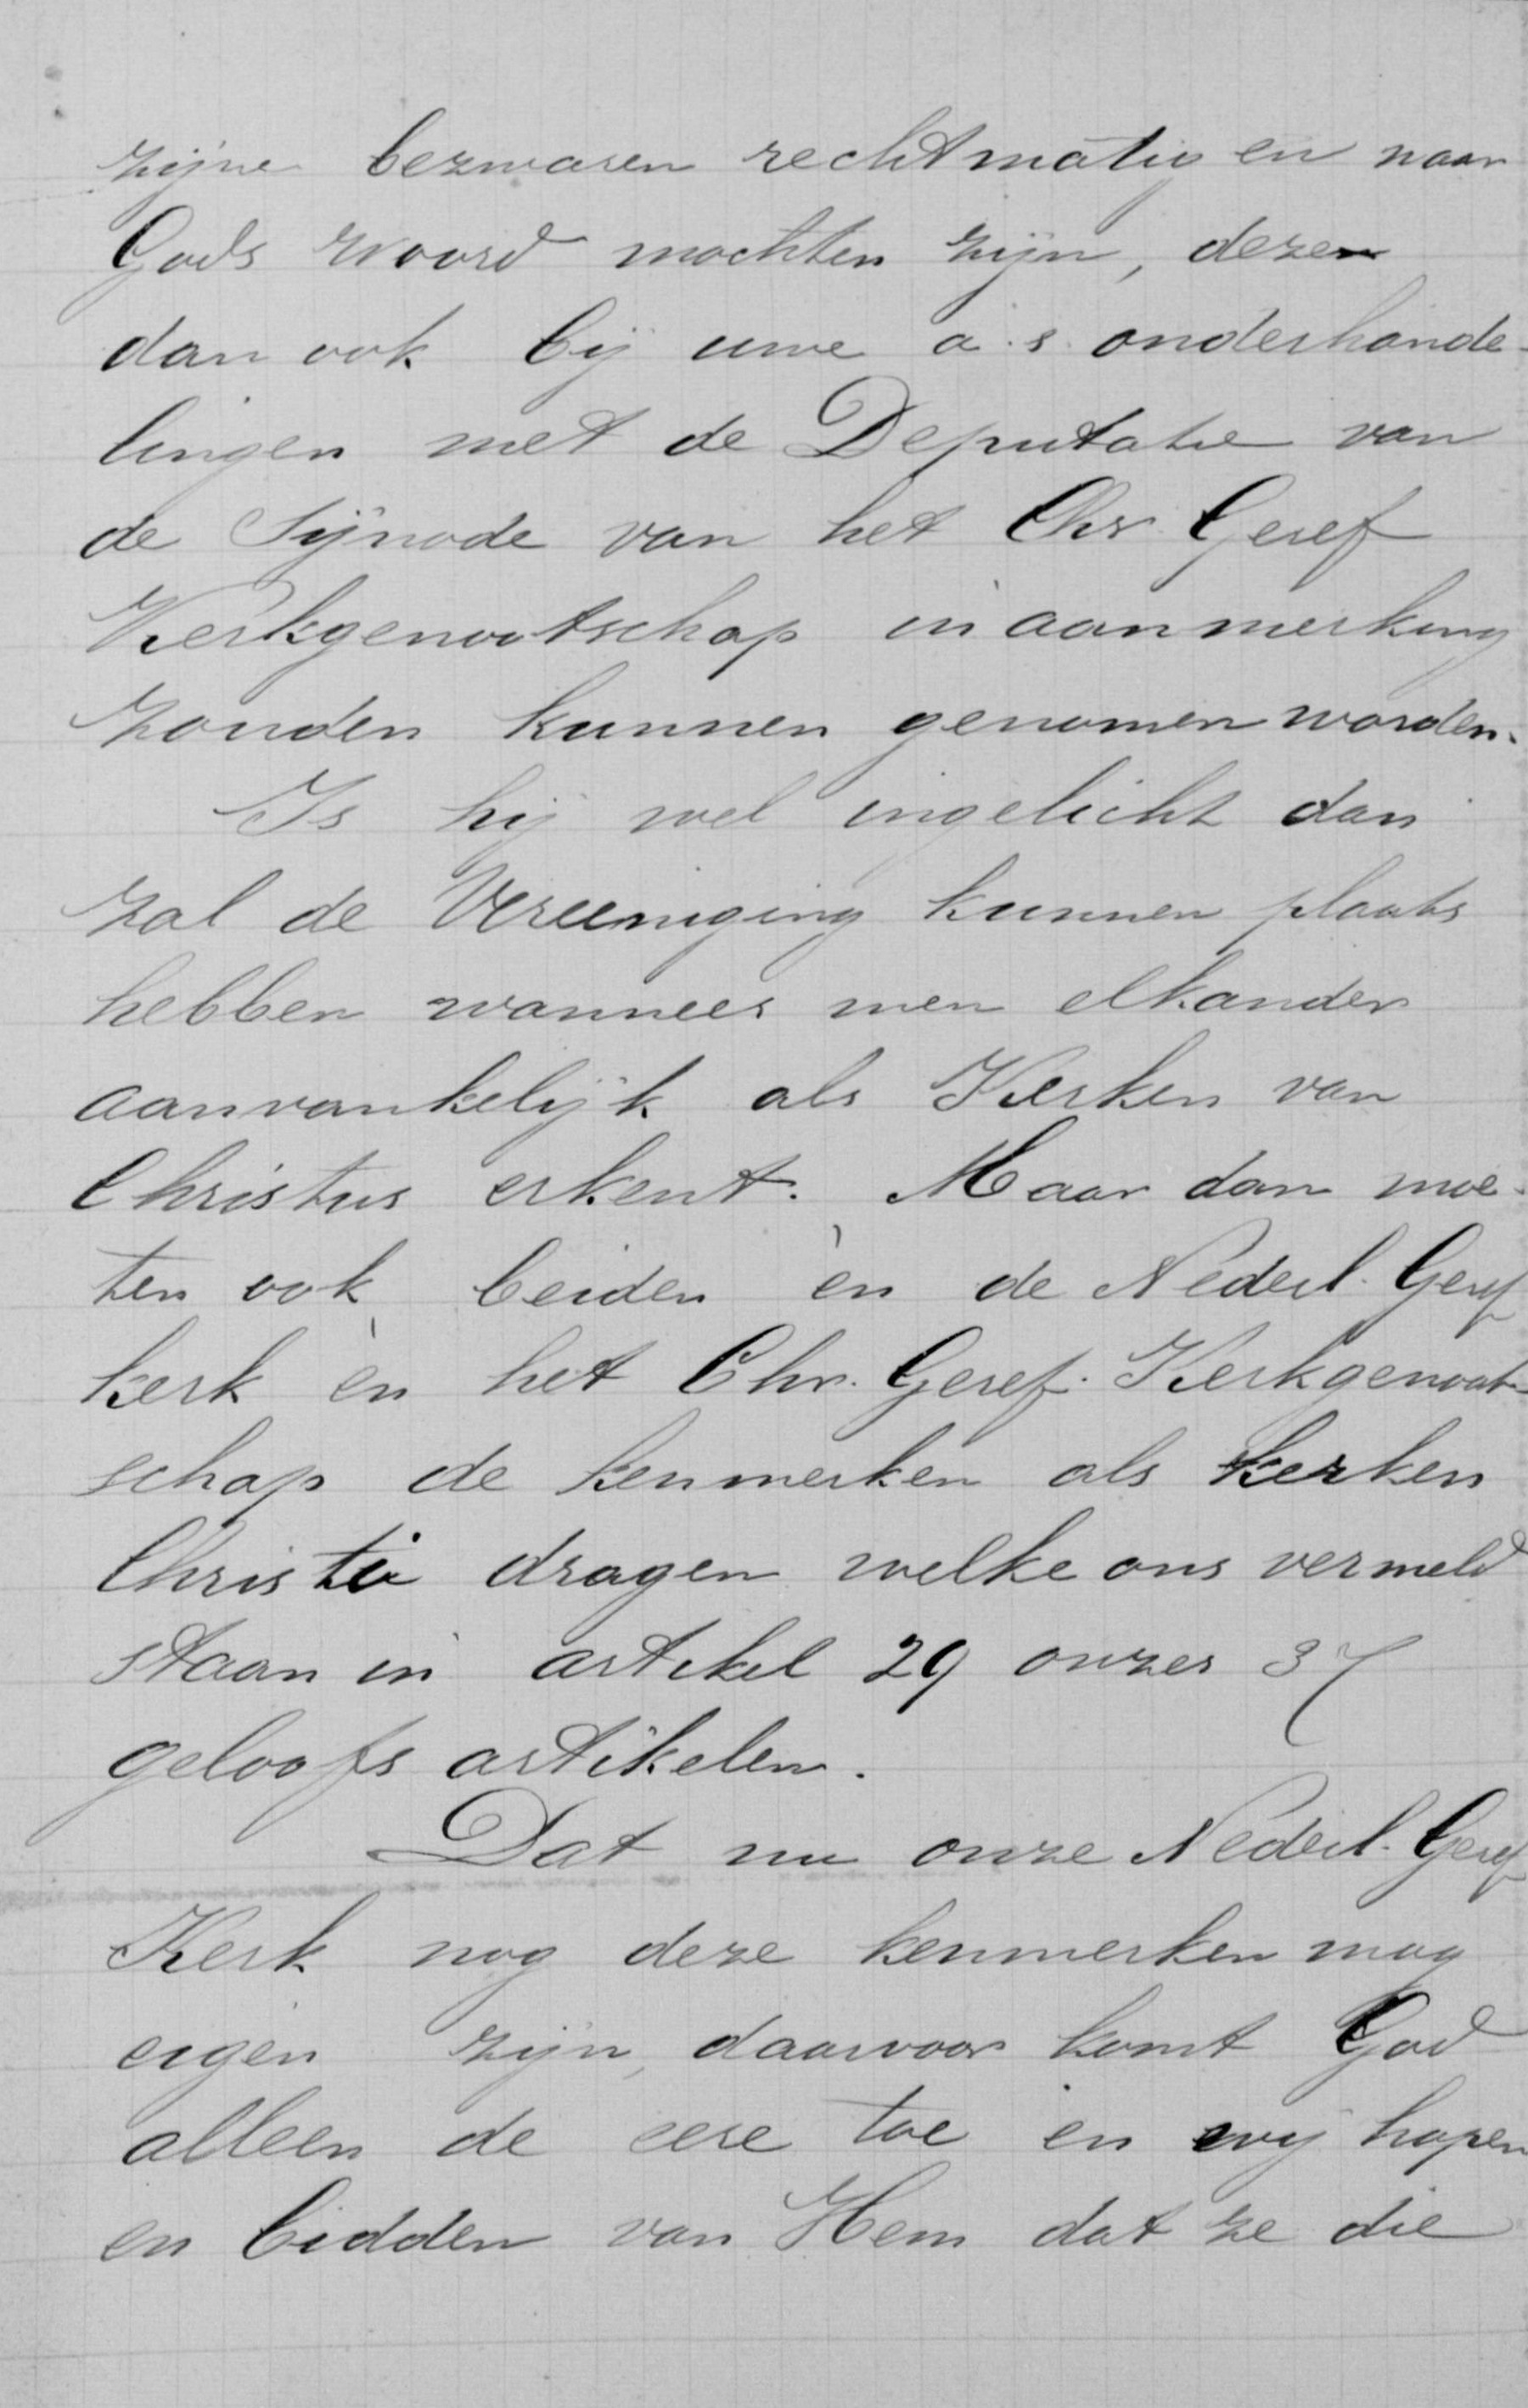 zijne bezwaren rechtmatig en naar
Gods woord mochten zijn, dezen
dan ook bij uwe a.s. onderhande-
lingen met de Deputatie van
de Sijnode van het Chr. Geref
Kerkgenootschap in aanmerking
zouden kunnen genomen worden.
Is hij wel ingelicht dan
zal de Vereeniging kunnen plaats
hebben wanneer men elkander
aanvankelijk als Kerken van
Christus erkent. Maar dan moe-
ten ook beiden èn de Nederl. Geref
kerk èn het Chr. Geref. Kerkgenoot-
schap de kenmerken als kerken
Christi dragen welke ons vermeld
staan in artikel 29 onzer 37
geloofs artikelen.
Dat nu onze Nederl. Geref
Kerk nog deze kenmerken mag
eigen zijn, daarvoor komt God
alleen de eere toe en wij hopen
en bidden van Hem dat ze die